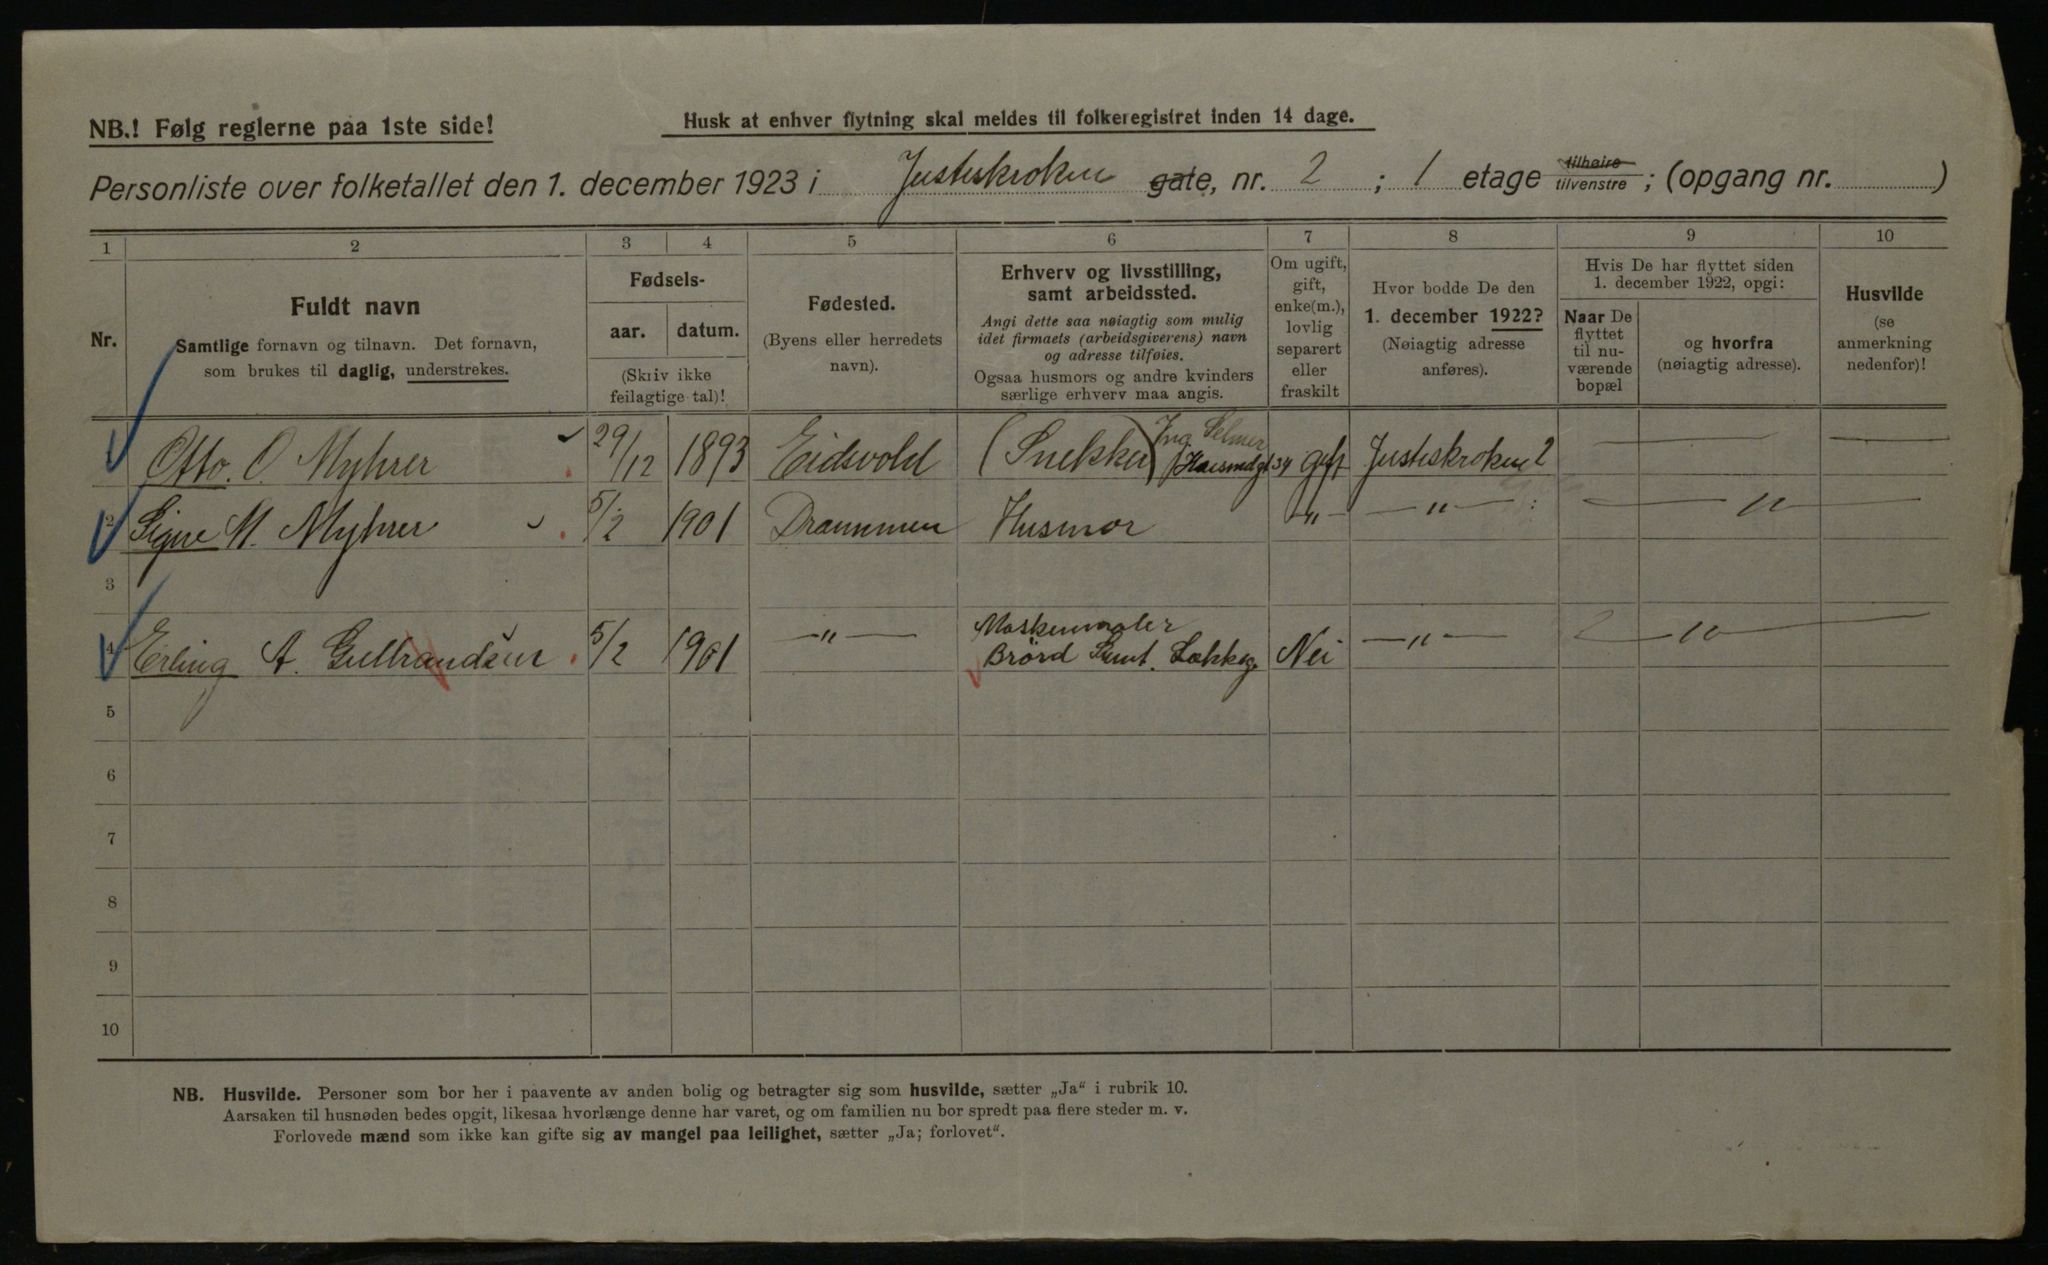 NB.! Følg reglerne paa 1ste side!
Husk at enhver flytning skal meldes til folkeregistret inden 14 dage.
Personliste over folketallet den 1. december 1923 i Justiskroken gate, nr. 2 ; 1 etage tilhøire tilvenstre ; (opgang nr. )
1 2 3 4 5 6 7 8 9 10
Nr.
Fuldt navn
Samtlige fornavn og tilnavn. Det fornavn,
som brukes til daglig, understrekes.
Fødsels-
aar. datum.
(Skriv ikke
feilagtige tal)!
Fødested.
(Byens eller herredets
navn).
Erhverv og livsstilling,
samt arbeidssted.
Angi dette saa nøiagtig som mulig
idet firmaets (arbeidsgiverens) navn
og adresse tilføies.
Ogsaa husmors og andre kvinders
særlige erhverv maa angis.
Om ugift,
gift,
enke(m.),
lovlig
separert
eller
fraskilt
Hvor bodde De den
1. december 1922?
(Nøiagtig adresse
anføres).
Hvis De har flyttet siden
1. december 1922, opgi:
Naar De
flyttet
til nu-
værende
bopæl
og hvorfra
(nøiagtig adresse).
Husvilde
(se
anmerkning
nedenfor)!
Otto. O. Myhrer 29/12 1893 Eidsvold (Snekker) Ing Selmer gift Justiskroken 2
2 Signe M. Myhrer 5/2 1901 Drammen Husmor — " — — " — — " —
3
4 Erling A. Gulbrandsen 5/2 1901 — " — Nei — " — — " —
5
6
7
8
9
10
NB. Husvilde. Personer som bor her i paavente av anden bolig og betragter sig som husvilde, sætter „Ja“ i rubrik 10.
Aarsaken til husnøden bedes opgit, likesaa hvorlænge denne har varet, og om familien nu bor spredt paa flere steder m. v.
Forlovede mænd som ikke kan gifte sig av mangel paa leilighet, sætter „Ja; forlovet“.